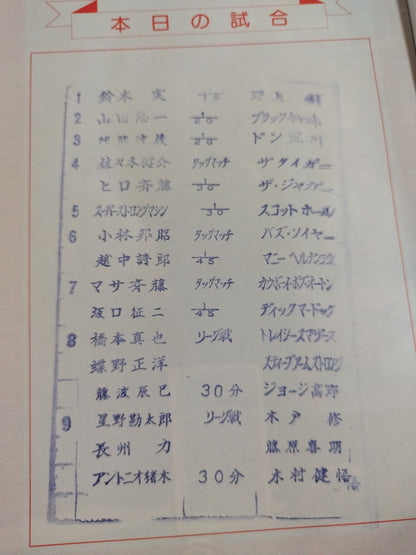 本日の試合
1 鈴木 実 1/15 野上 彰
2 山田恵一 1/20 ブラック・キャット
3 後藤達俊 1/20 ドン荒川
4 佐々木健介 タッグマッチ ザ・タイガー
ヒロ斉藤 1/30 ザ・ジャガー
5 スーパーストロングマシン 1/30 スコット・ホール
6 小林邦昭 タッグマッチ バズ・ソイヤー
越中詩郎 1/45 マニー・ヘルナンデス
7 マサ斉藤 タッグマッチ カウボーイ・ボブ・オートン
坂口征二 1/45 ディック・マードック
8 橋本真也 リーグ戦 トレーシー・スマザース
蝶野正洋 スティーブ・アームストロング
藤波辰巳 30分 ジョージ高野
9 星野勘太郎 リーグ戦 木戸 修
長州 力 藤原喜明
アントニオ猪木 30分 木村健悟